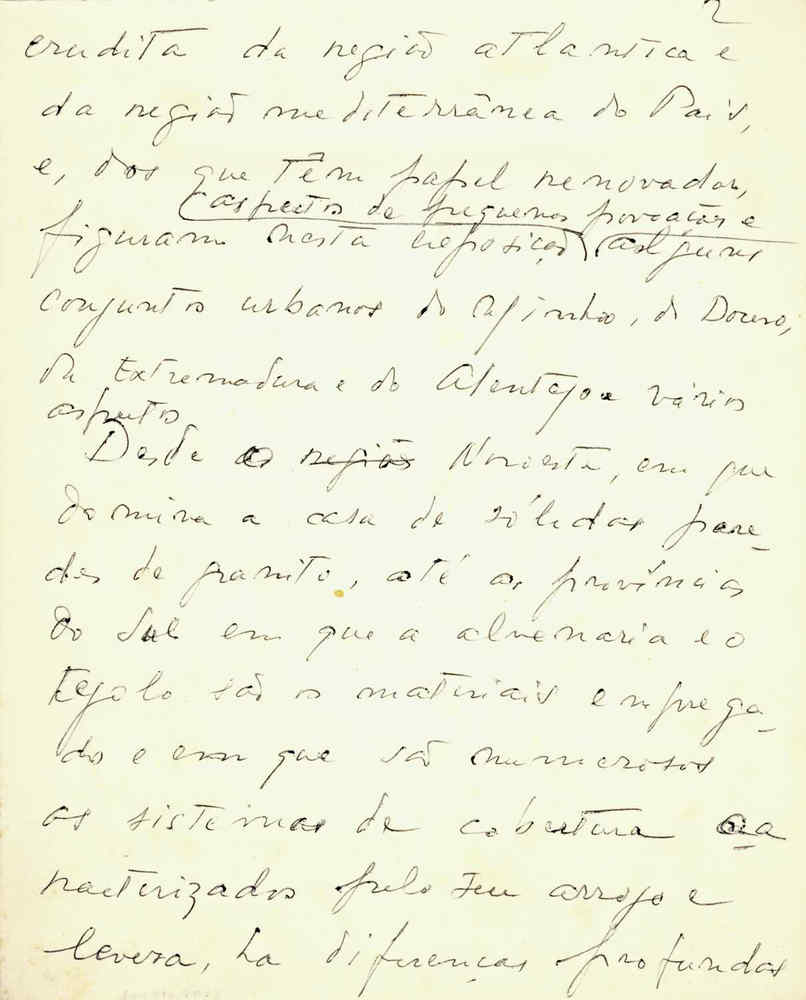 2
erudita da região atlantica e
da região mediterrânea do País,
e, dos que têm papel renovador,
aspectos de pequenas povoações e
figuram nesta exposição alguns
conjuntos urbanos do Minho, do Douro,
da Extremadura e do Alentejo e vários
aspectos
Desde as regiões Noroeste, em que
domina a casa de sólidas pare-
des de granito, até as províncias
do Sul em que a alvenaria e o
tejolo são os materiais emprega-
dos e em que são numerosos
os sistemas de cobertura ca
racterizados pelo seu arrojo e
leveza, ha diferenças profundas